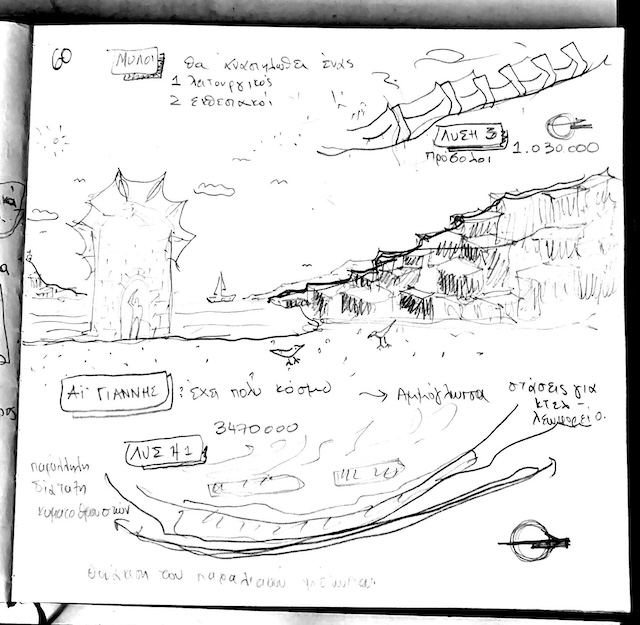 60
ΜΥΛΟΙ
θα αναστηλωθεί ένας
1 λειτουργικός
2 επισκεπτ
ΛΥΣΗ 3
πρόβολοι
1.030.000
ΑΪ ΓΙΑΝΝΗΣ : έχει πολύ κόσμο → Αμμόγλωσσα
στάσεις για
κτελ -
λεωφορείο.
3470000
ΛΥΣΗ 1
παράλληλη
διάταξη
κυματοθραυστών
του παραλιακού μετώπου